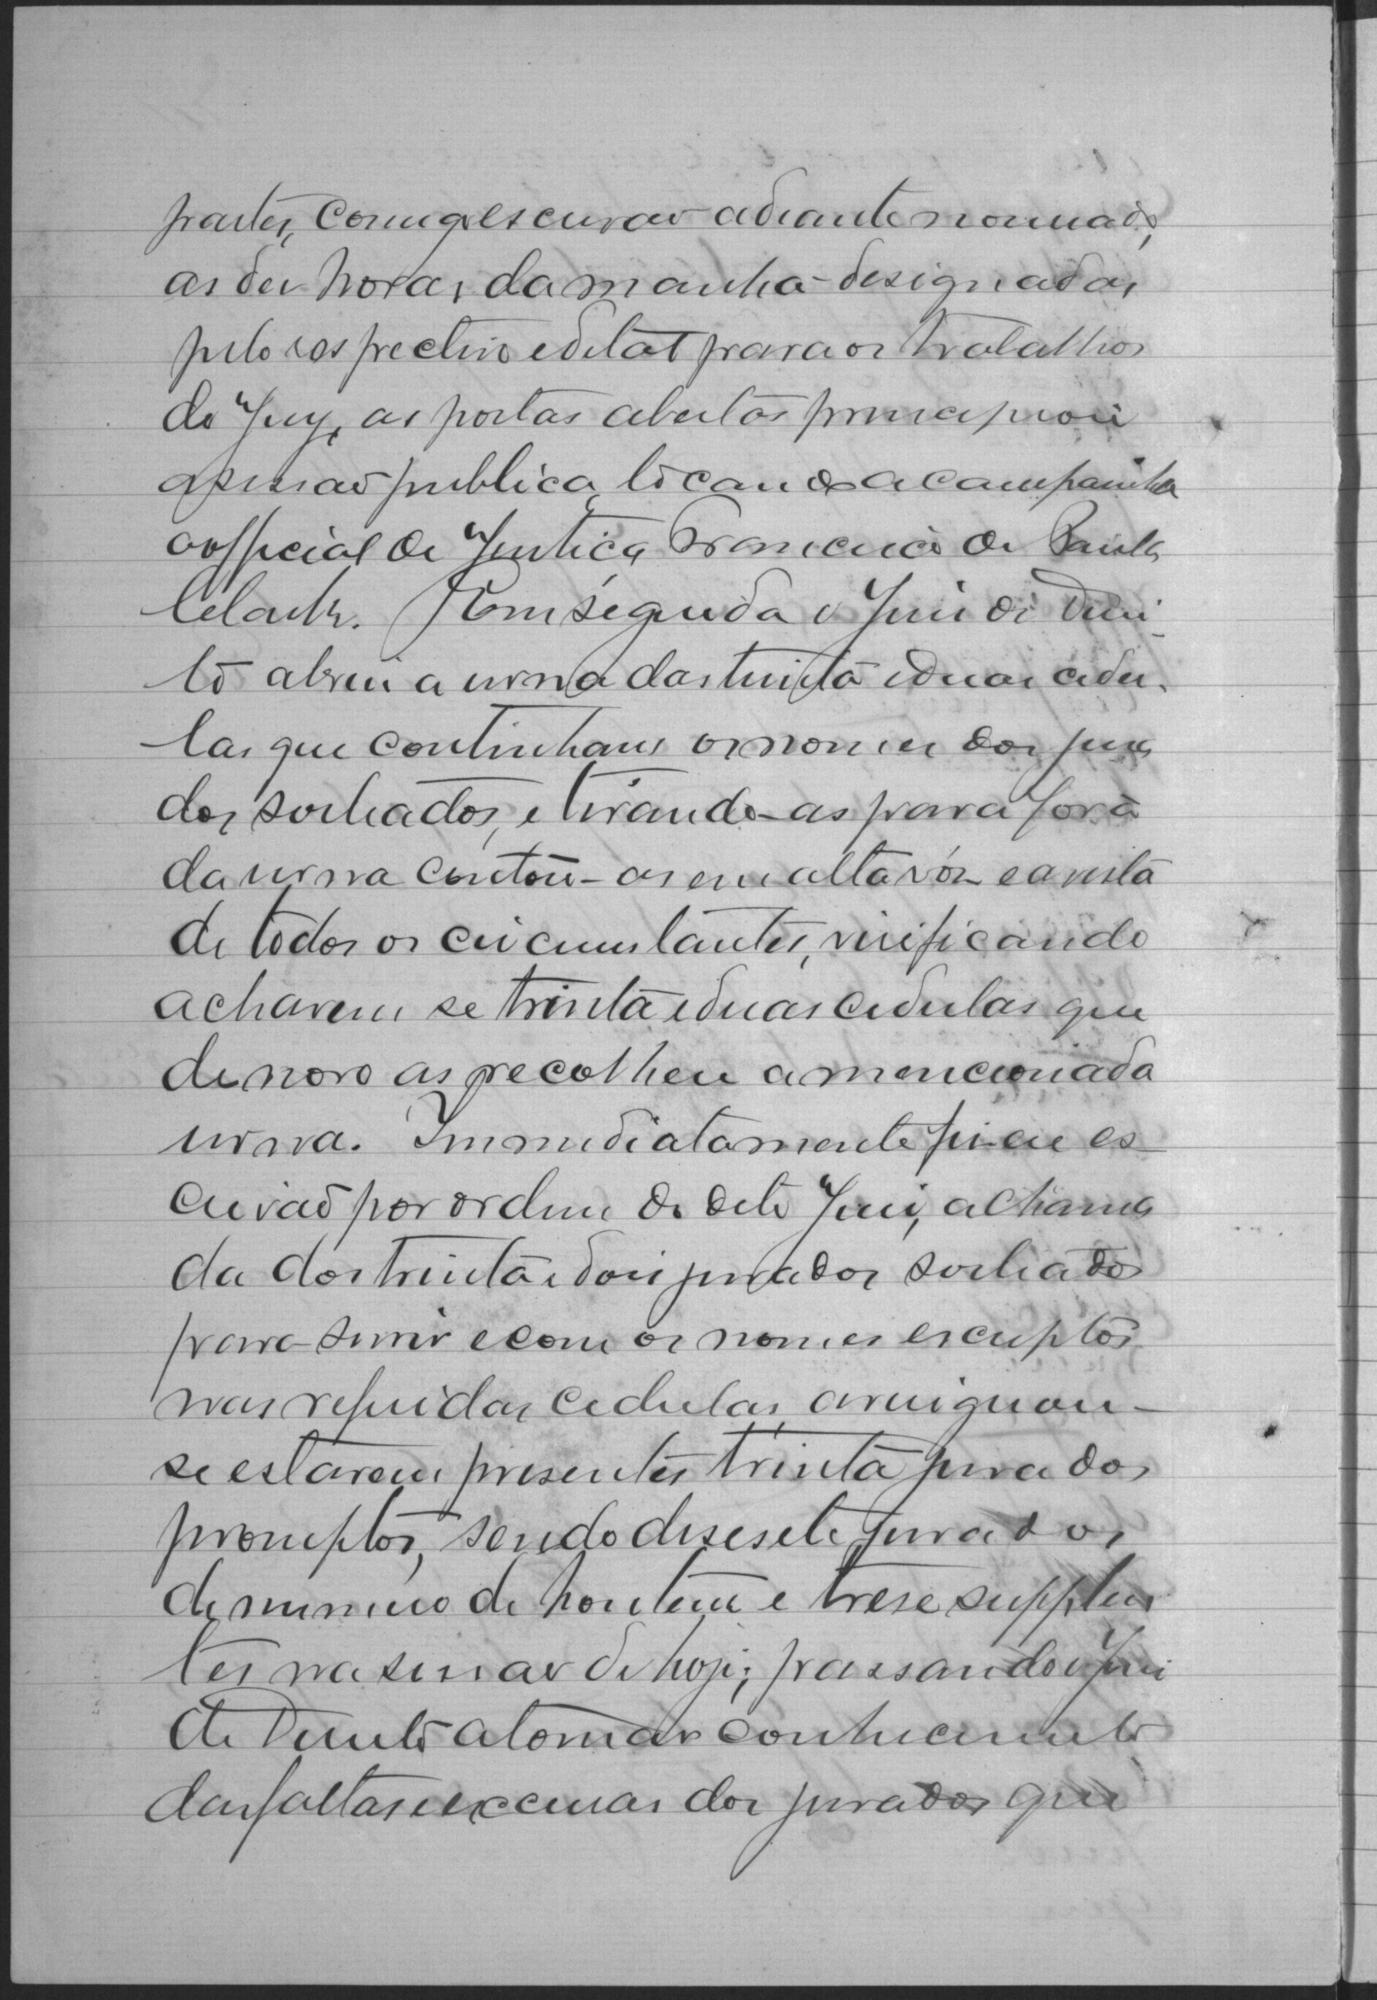 partes, comigo escrivão adiante nomeado,
as dez horas da manhã designadas
pelo respectivo edital para os trabalhos
do Jury, as portas abertas principiou
a sessão publica, tocando a campainha
o official de Justiça Francisco de Paula
Em seguida o Juiz de Direi-
to abriu a urna das trinta e duas cedu-
las que continham os nomes dos jura
dos sorteados, e tirando-as para fora
da urna contou-as em alta vóz e a vista
de todos os circumstantes, verificando
acharem se trinta e duas cedulas que
de novo as recolheu a mencionada
urna. Immediatamente fiz eu es-
crivão por ordem do dito Juiz, a chama
da dos trinta e dois jurados sorteados
para servir e com os nomes escriptos
nas referidas cedulas, averiguou-
se estarem presentes trinta jurados
promptos, sendo desesete jurados
do numero de hontem e trese supplen
tes na sessão de hoje; passando o Juiz
de Direito a tomar conhecimento
das faltas e excusas dos jurados que